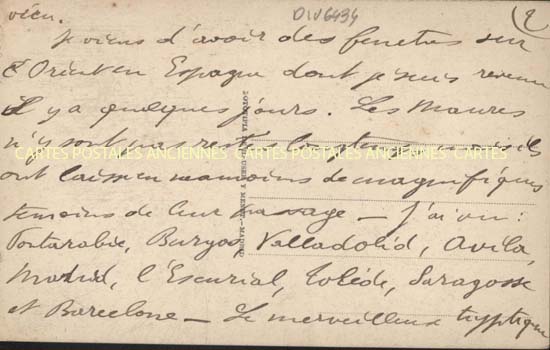 DIV6494
2
rien.
Je viens d'avoir des fenetres sur
l'Orient en Espagne dont je suis revenu
il y a quelques jours. Les Maures
n'y sont pas restés longtemps mais ils
CARTES POSTALES ANCIENNES CARTES POSTALES ANCIENNES CARTES
ont laissé de magnifiques
temoins de leur passage – J'ai vu :
Fontarabie, Burgos, Valladolid, Avila,
Madrid, l'Escurial, Tolède, Saragosse
et Barcelone – Le merveilleux tryptique
FOTOTIPIA DE Y MENET.-MADRID